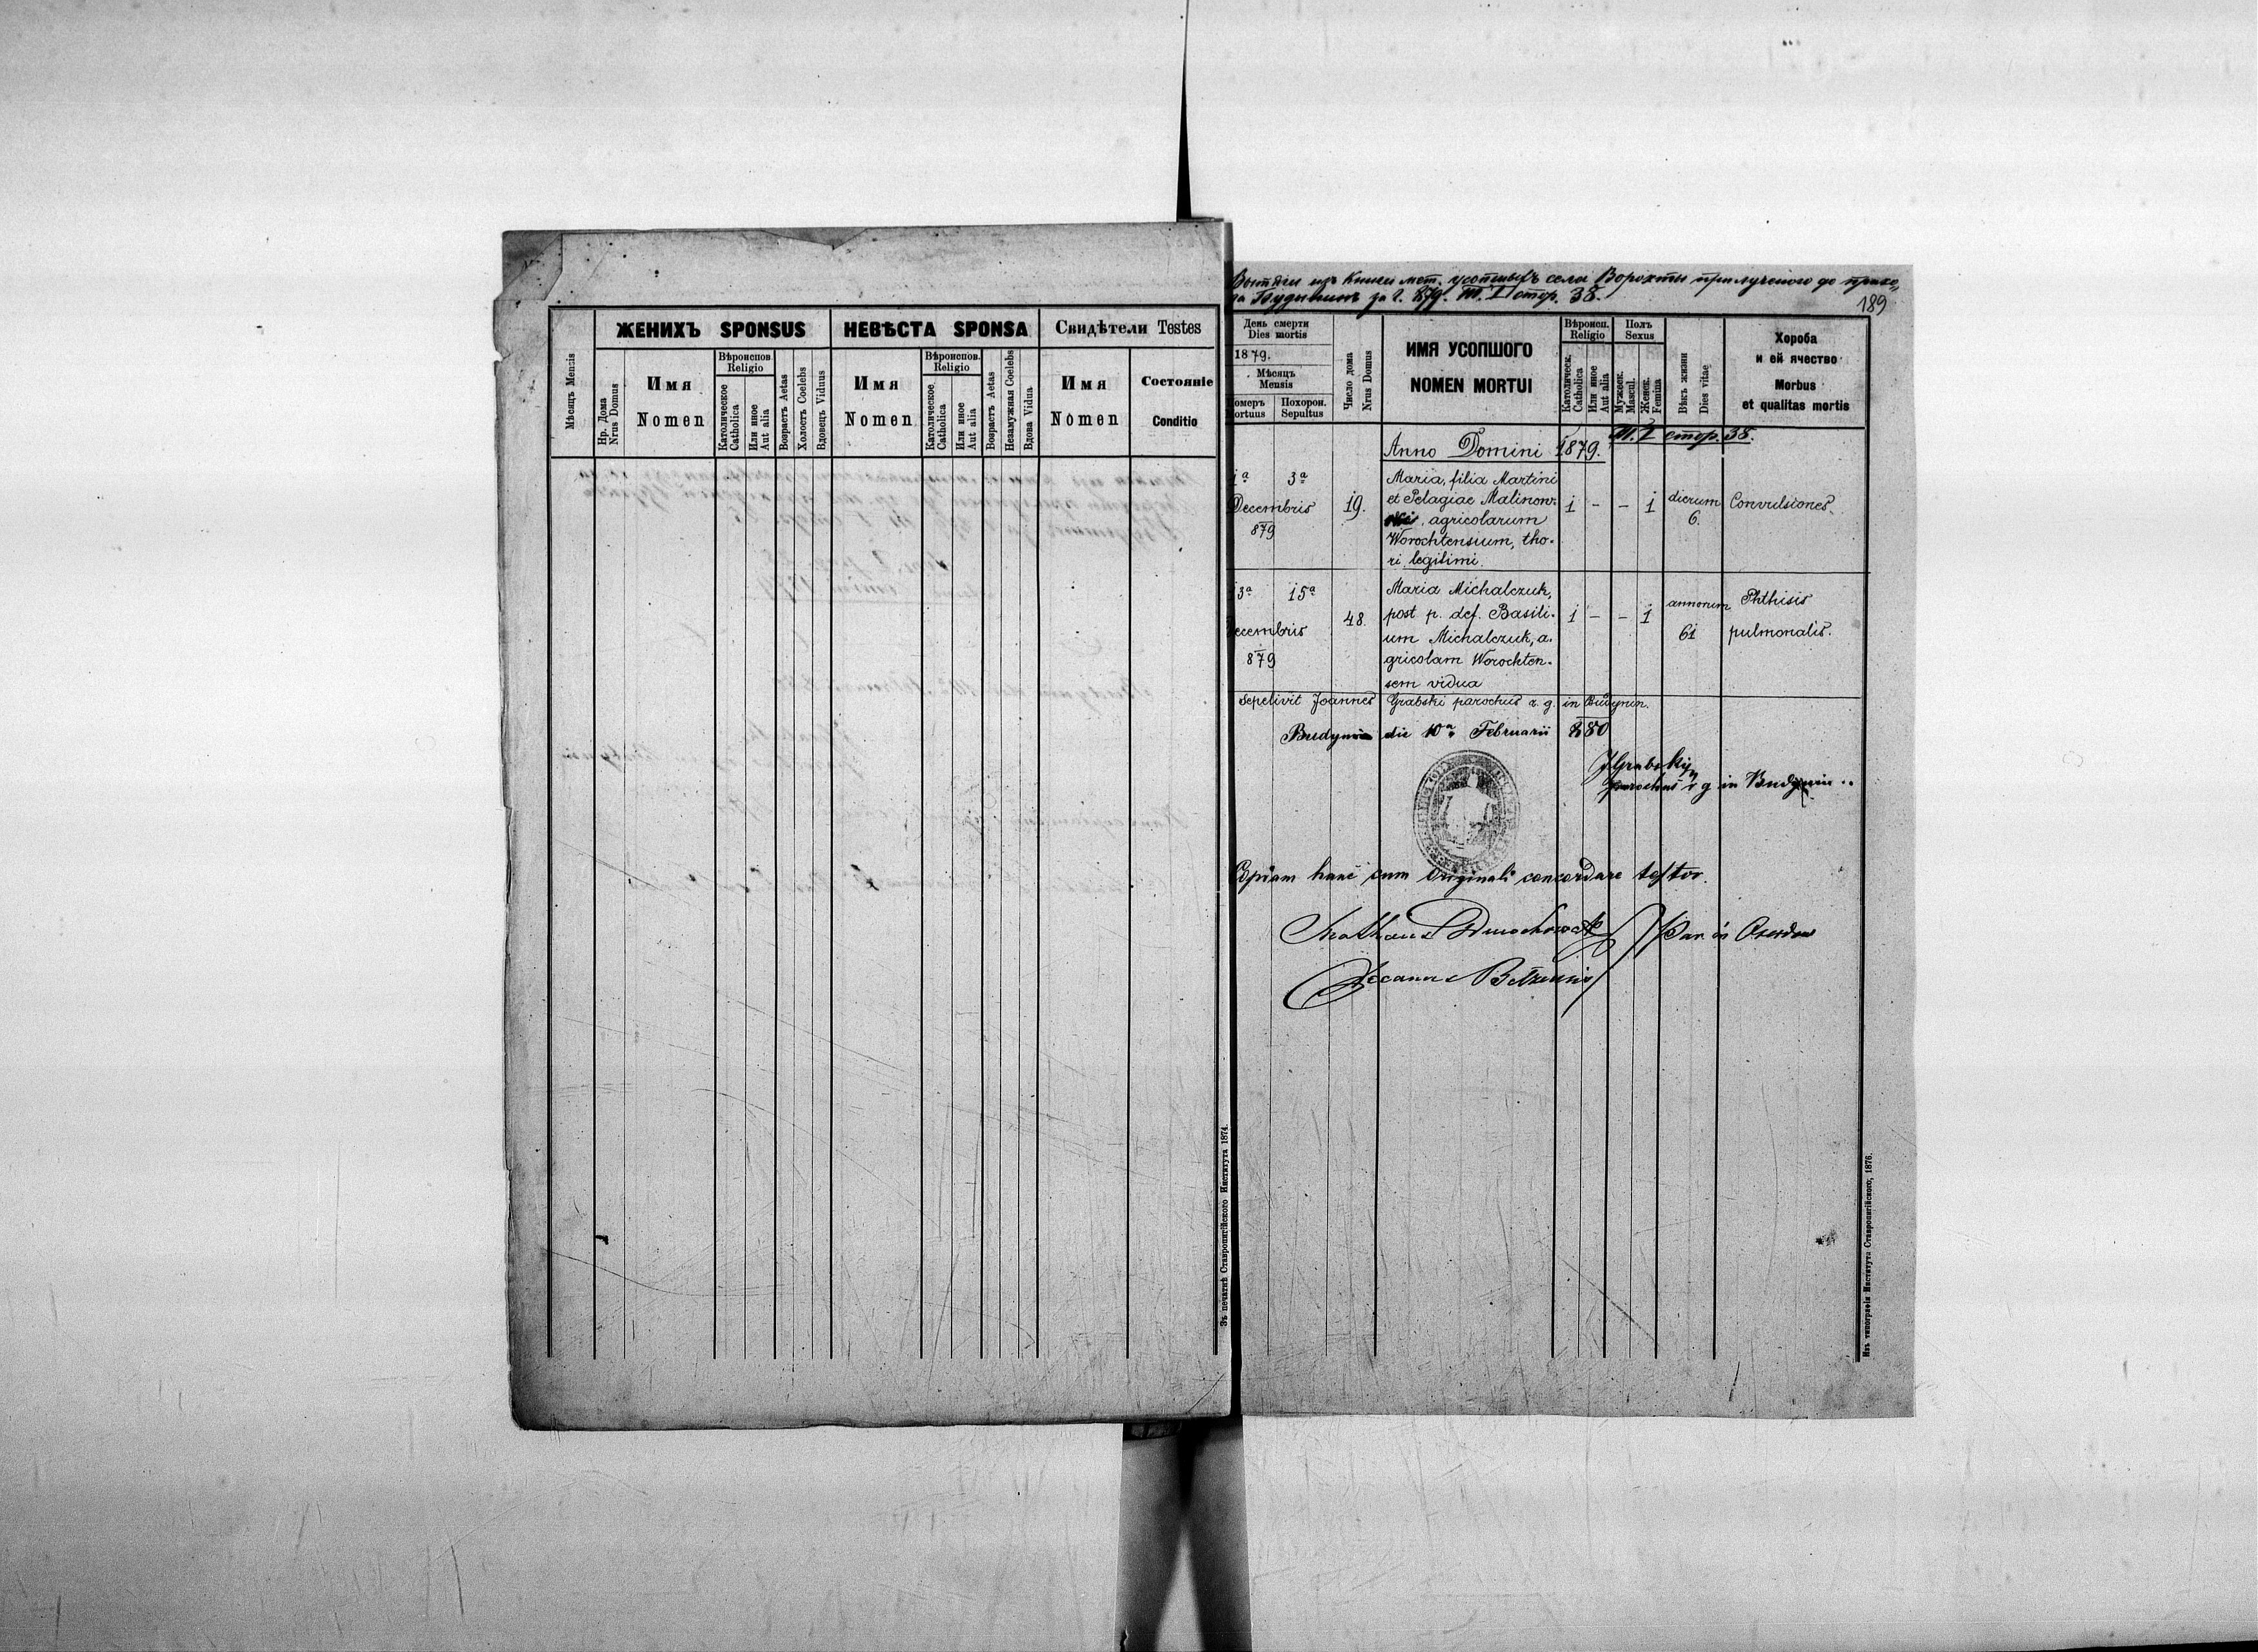 ЖЕНИХЪ SPONSUS
НЕВѢСТА SPONSA
Свидѣтели Testes
Мѣсяцъ Mensis
Нр. Дома
Nrus Domus
Имя
Nomen
Вѣроиспов.
Religio
Католическое
Catholica
Или иное
Aut alia
Возрастъ Aetas
Холостъ Coelebs
Вдовецъ Viduus
Имя
Nomen
Вѣроиспов.
Religio
Католическое
Catholica
Или иное
Aut alia
Возрастъ Aetas
Незамужная Coelebs
Вдова Vidua
Имя
Nomen
Состояніе
Conditio
Зъ печатнѣ Ставропигійского Института 1874.
Вытягъ изъ Книги мет. усопшихъ села Ворохты прилученого до прихо,
за г. 879. Т. I стор. 38.
189
День смерти
Dies mortis
1879.
Мѣсяцъ
Mensis
омеръ
ortuus
Похорон.
Sepultus
Число дома
Nrus Domus
ИМЯ УСОПШОГО
NOMEN MORTUI
Вѣроисп.
Religio
Католическ.
Catholica
Или иное
Aut alia
Полъ
Sexus
Мужеск.
Mascul.
Женск.
Femina
Вѣкъ жизни
Dies vitae
Хороба
и ей ячество
Morbus
et qualitas mortis
Anno Domini 1879.
Т. I стор. 38.
1a 3a
Decembris
879
19.
Maria, filia Martini
et Pelagiae Malinow-
agricolarum
Worochtensium, tho-
ri legitimi.
1 - - 1
dierum
6.
Convulsiones.
3a 15a
ecembris
879
48.
Maria Michalczuk,
post p. def. Basili-
um Michalczuk, a-
gricolam Worochten-
sem vidua
1 - - 1
annorum
61
Phthisis
pulmonalis.
Sepelivit Joannes Grabski parochus r. g. in Budynin.
Budynin die 10a Februarii 880
JGrabskij
parochus r g in Budynin
Copiam hanc cum originali concordare testor.
Par in
Decanus Belzensis
Изъ типографіи Института Ставропигійского, 1876.